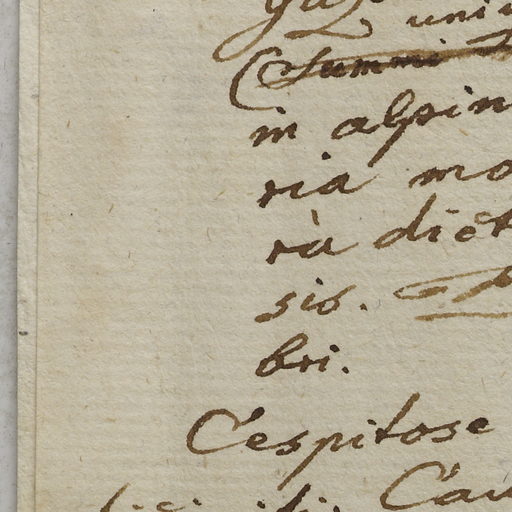 uni
(Summi
in alpin
ria mo
rà dict
sis.
bri.
Cespitose
Cau